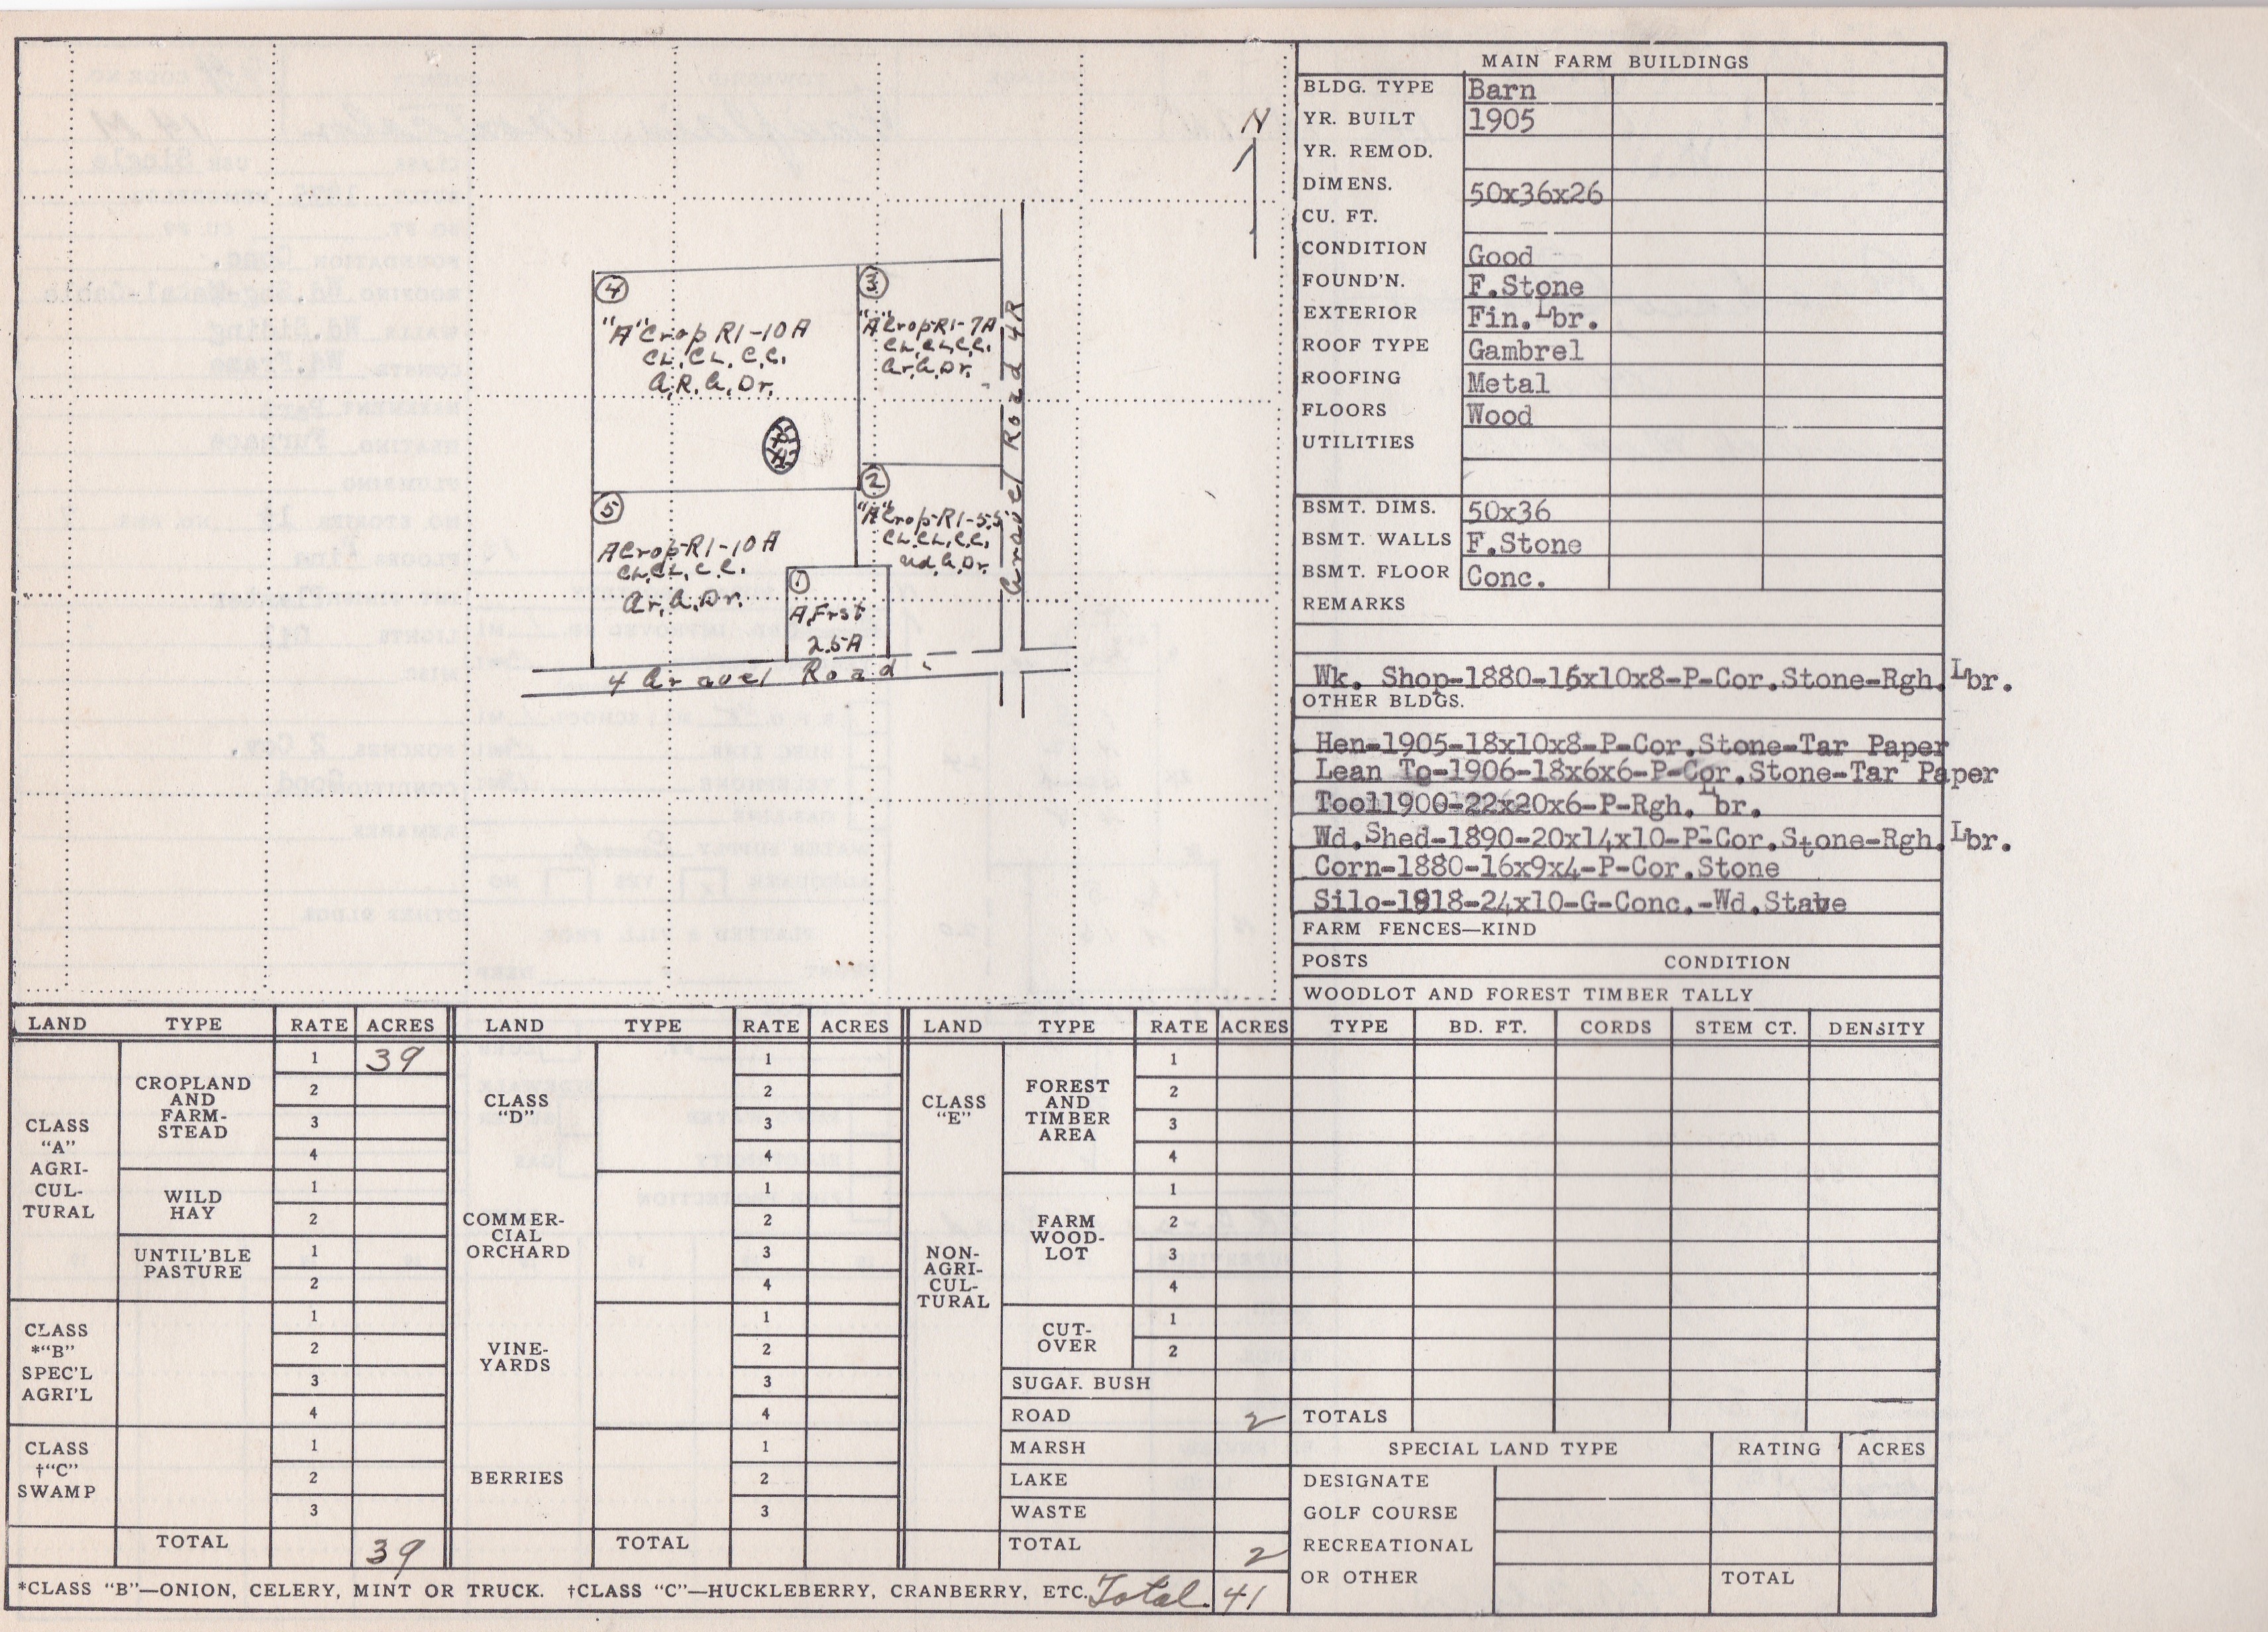 N
④ ③
"A" Crop R1-10A
CL, CL, C.C.
A, R, G, Dr.
"A" Crop-R1-7A
CL, CL, C.C.
Gr, G, Dr.
Gravel Road 4R
⑤ ②
A Crop-R1-10A
CL, CL, C.C.
Gr, G, Dr.
"A" Crop-R1-5.5
CL, CL, C.C.
G, Dr.
①
A Frst
2.5A
4 Gravel Road
MAIN FARM BUILDINGS
BLDG. TYPE Barn
YR. BUILT 1905
YR. REMOD.
DIMENS. 50x36x26
CU. FT.
CONDITION Good
FOUND'N. F.Stone
EXTERIOR Fin.Lbr.
ROOF TYPE Gambrel
ROOFING Metal
FLOORS Wood
UTILITIES
BSMT. DIMS. 50x36
BSMT. WALLS F.Stone
BSMT. FLOOR Conc.
REMARKS
Wk. Shop-1880-16x10x8-P-Cor.Stone-Rgh.Lbr.
OTHER BLDGS.
Hen-1905-18x10x8-P-Cor.Stone-Tar Paper
Lean To-1906-18x6x6-P-Cor.Stone-Tar Paper
Tool1900-22x20x6-P-Rgh.Lbr.
Wd.Shed-1890-20x14x10-P-Cor.Stone-Rgh.Lbr.
Corn-1880-16x9x4-P-Cor.Stone
Silo-1918-24x10-G-Conc.-Wd.Stave
FARM FENCES—KIND
POSTS CONDITION
WOODLOT AND FOREST TIMBER TALLY
TYPE BD. FT. CORDS STEM CT. DENSITY
TOTALS
SPECIAL LAND TYPE RATING ACRES
DESIGNATE
GOLF COURSE
RECREATIONAL
OR OTHER TOTAL
LAND TYPE RATE ACRES
CLASS
"A"
AGRI-
CUL-
TURAL
CROPLAND
AND
FARM-
STEAD
1 39
2
3
4
WILD
HAY
1
2
UNTIL'BLE
PASTURE
1
2
CLASS
*"B"
SPEC'L
AGRI'L
1
2
3
4
CLASS
†"C"
SWAMP
1
2
3
TOTAL 39
LAND TYPE RATE ACRES
CLASS
"D"
1
2
3
4
COMMER-
CIAL
ORCHARD
1
2
3
4
VINE-
YARDS
1
2
3
4
BERRIES
1
2
3
TOTAL
LAND TYPE RATE ACRES
CLASS
"E"
NON-
AGRI-
CUL-
TURAL
FOREST
AND
TIMBER
AREA
1
2
3
4
FARM
WOOD-
LOT
1
2
3
4
CUT-
OVER
1
2
SUGAR BUSH
ROAD 2
MARSH
LAKE
WASTE
TOTAL 2
*CLASS "B"—ONION, CELERY, MINT OR TRUCK. †CLASS "C"—HUCKLEBERRY, CRANBERRY, ETC. Total 41